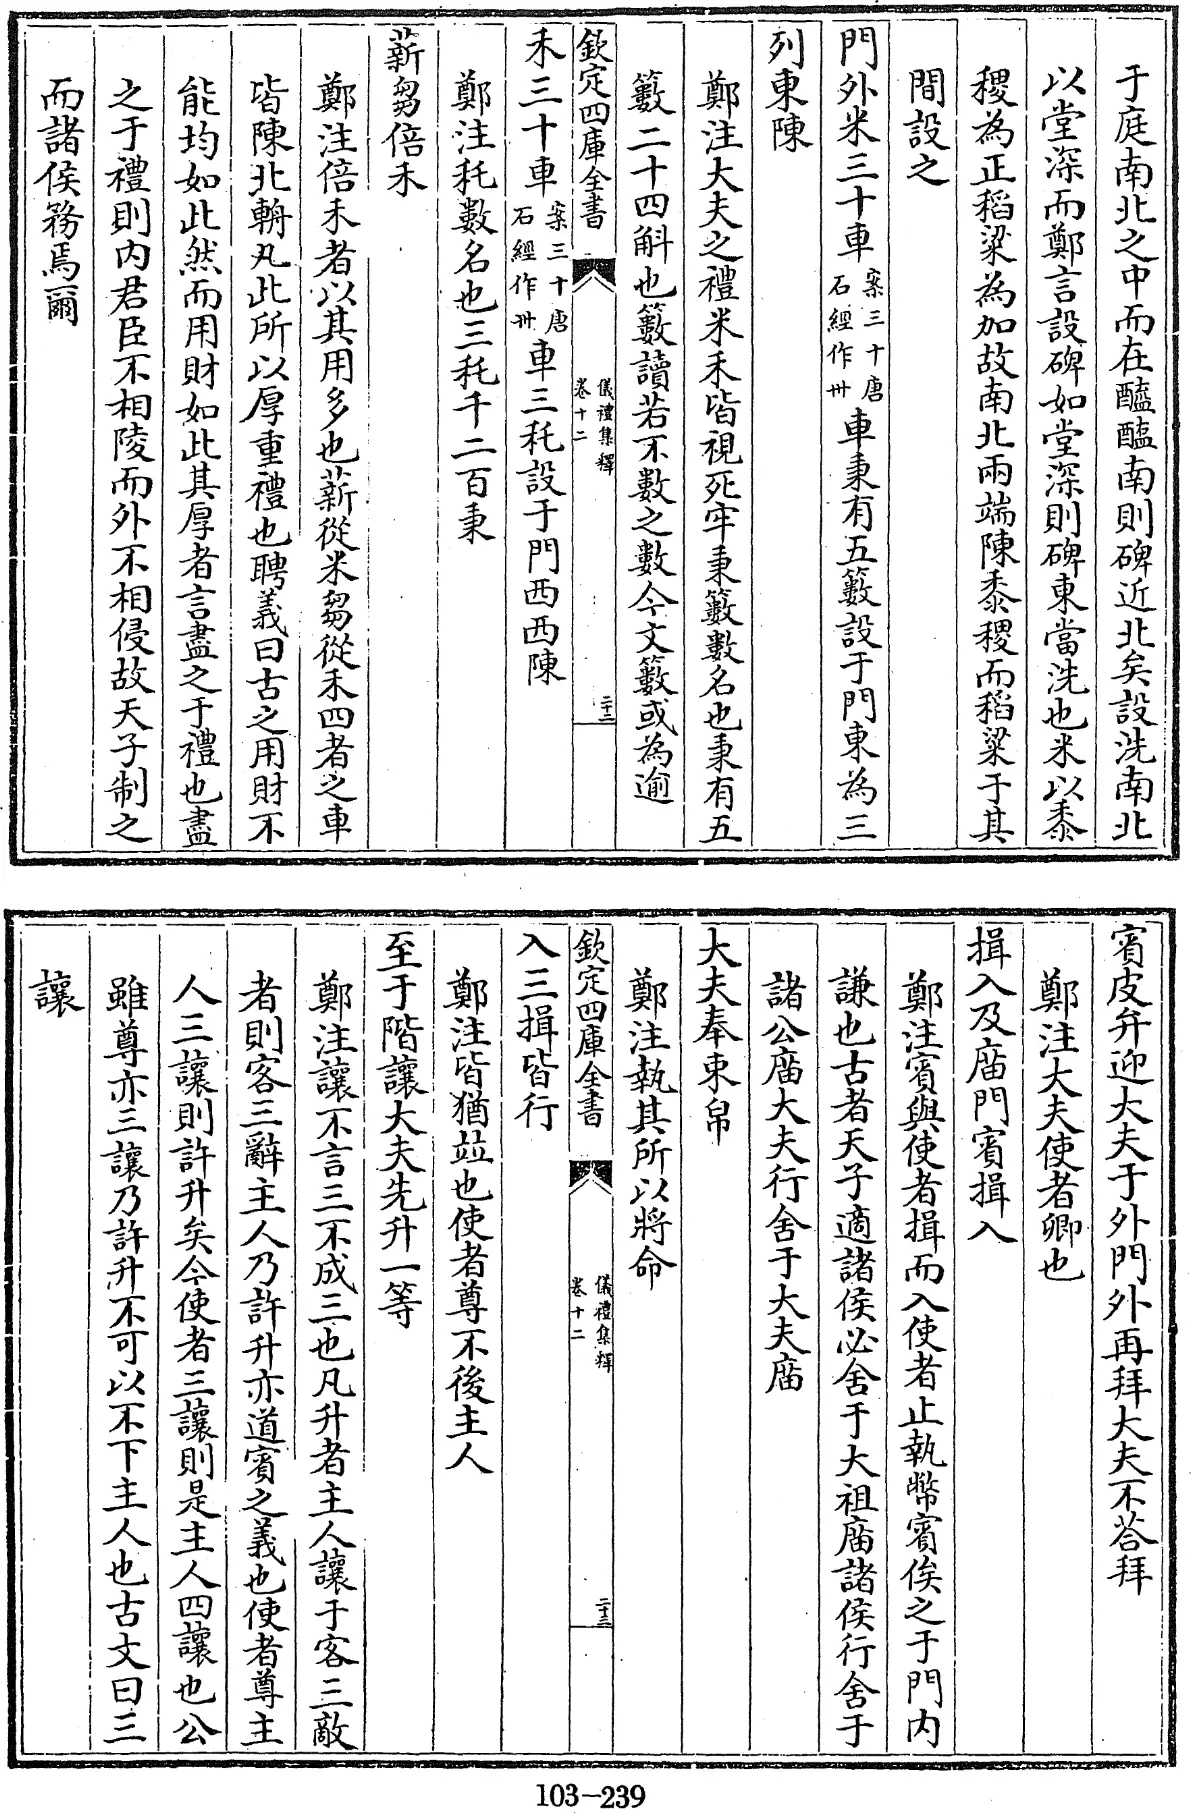 于庭南北之中而在醯醢南則碑近北矣設洗南北
以堂深而鄭言設碑如堂深則碑東當洗也米以黍
稷為正稻粱為加故南北兩端陳黍稷而稻粱于其
間設之
門外米三十車案三十唐石經作卅車秉有五籔設于門東為三
列東陳
鄭注大夫之禮米禾皆視死牢秉籔數名也秉有五
籔二十四斛也籔讀若不數之數今文籔或為逾
欽定四庫全書
儀禮集釋
卷十二
二十二
禾三十車案三十唐石經作卅車三秅設于門西西陳
鄭注秅數名也三秅千二百秉
薪芻倍禾
鄭注倍禾者以其用多也薪從米芻從禾四者之車
皆陳北輈凡此所以厚重禮也聘義曰古之用財不
能均如此然而用財如此其厚者言盡之于禮也盡
之于禮則内君臣不相陵而外不相侵故天子制之
而諸侯務焉爾
賓皮弁迎大夫于外門外再拜大夫不答拜
鄭注大夫使者卿也
揖入及廟門賓揖入
鄭注賓與使者揖而入使者止執幣賓俟之于門内
謙也古者天子適諸侯必舍于大祖廟諸侯行舍于
諸公廟大夫行舍于大夫廟
大夫奉束帛
鄭注執其所以將命
欽定四庫全書
儀禮集釋
卷十二
二十三
入三揖皆行
鄭注皆猶竝也使者尊不後主人
至于階讓大夫先升一等
鄭注讓不言三不成三也凡升者主人讓于客三敵
者則客三辭主人乃許升亦道賓之義也使者尊主
人三讓則許升矣今使者三讓則是主人四讓也公
雖尊亦三讓乃許升不可以不下主人也古文曰三
讓
103-239